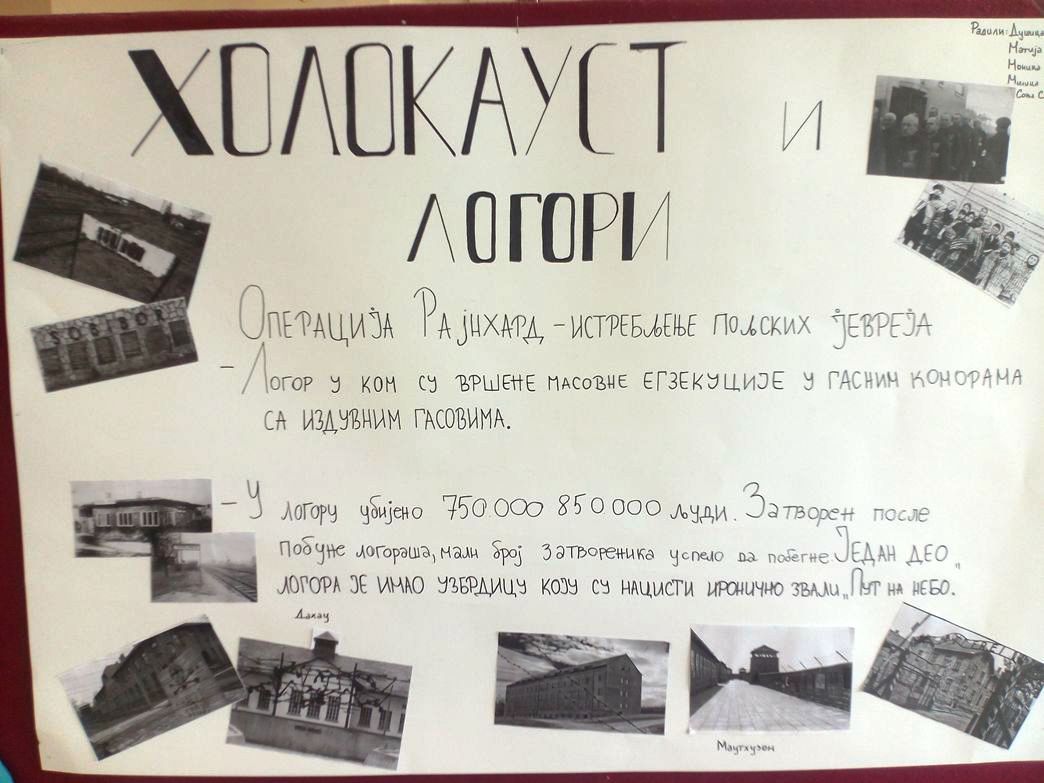 ХОЛОКАУСТ И
ЛОГОРИ
Радили: Душица
Матија
Моника
Милица
Соња С
SOBIBOR
Операција Рајнхард - истребљење пољских Јевреја
- Логор у ком су вршене масовне егзекуције у гасним коморама
са издувним гасовима.
- У логору убијено 750 000 850 000 људи. Затворен после
побуне логораша, мали број затвореника успело да побегне. Један део
логора је имао узбрдицу коју су нацисти иронично звали „Пут на небо.“
Дахау
Маутхузен